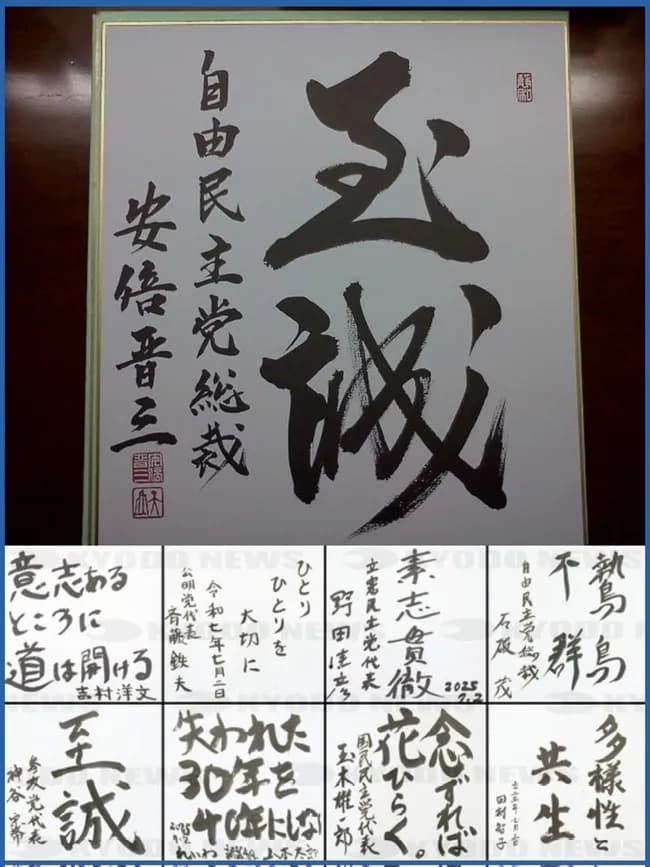 至誠
自由民主党総裁
安倍晋三
意志ある
ところに
道は開ける
吉村洋文
ひとり
ひとりを
大切に
令和七年七月二日
公明党代表
斉藤鉄夫
素志貫徹
2025
7.2
立憲民主党代表
野田佳彦
鷙鳥
不群
自由民主党総裁
石破 茂
至誠
参政党代表
神谷宗幣
失われた
30年を
40年にしな
れいわ
山本太郎
念ずれば
花ひらく。
国民民主党代表
玉木雄一郎
多様性と
共生
二〇二五年七月二日
田村智子
KYODO NEWS